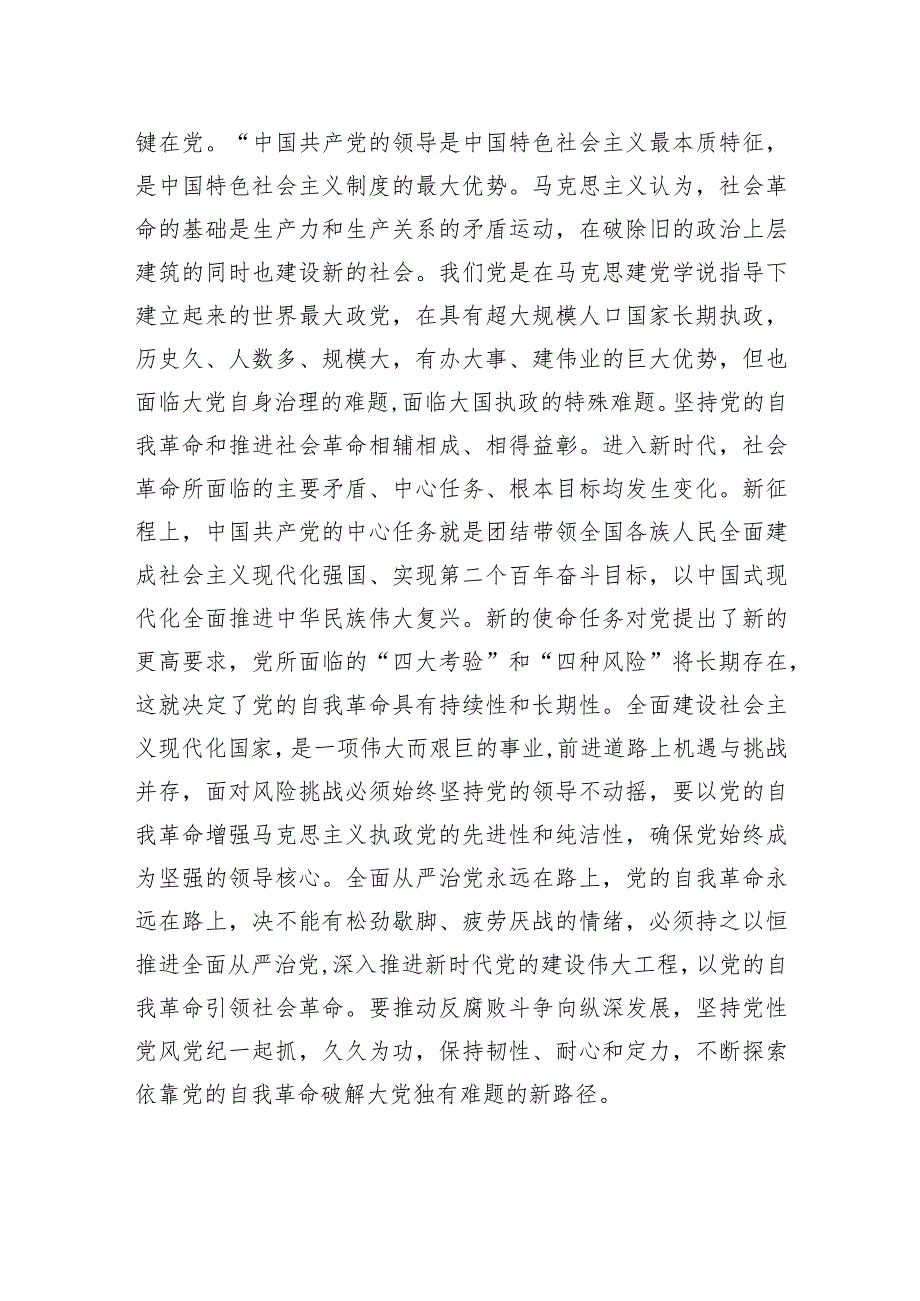 键在党。“中国共产党的领导是中国特色社会主义最本质特征，
是中国特色社会主义制度的最大优势。马克思主义认为，社会革
命的基础是生产力和生产关系的矛盾运动，在破除旧的政治上层
建筑的同时也建设新的社会。我们党是在马克思建党学说指导下
建立起来的世界最大政党，在具有超大规模人口国家长期执政，
历史久、人数多、规模大，有办大事、建伟业的巨大优势，但也
面临大党自身治理的难题,面临大国执政的特殊难题。坚持党的自
我革命和推进社会革命相辅相成、相得益彰。进入新时代，社会
革命所面临的主要矛盾、中心任务、根本目标均发生变化。新征
程上，中国共产党的中心任务就是团结带领全国各族人民全面建
成社会主义现代化强国、实现第二个百年奋斗目标，以中国式现
代化全面推进中华民族伟大复兴。新的使命任务对党提出了新的
更高要求，党所面临的“四大考验”和“四种风险”将长期存在，
这就决定了党的自我革命具有持续性和长期性。全面建设社会主
义现代化国家,是一项伟大而艰巨的事业,前进道路上机遇与挑战
并存，面对风险挑战必须始终坚持党的领导不动摇，要以党的自
我革命增强马克思主义执政党的先进性和纯洁性，确保党始终成
为坚强的领导核心。全面从严治党永远在路上，党的自我革命永
远在路上，决不能有松劲歇脚、疲劳厌战的情绪，必须持之以恒
推进全面从严治党,深入推进新时代党的建设伟大工程,以党的自
我革命引领社会革命。要推动反腐败斗争向纵深发展，坚持党性
党风党纪一起抓，久久为功，保持韧性、耐心和定力，不断探索
依靠党的自我革命破解大党独有难题的新路径。